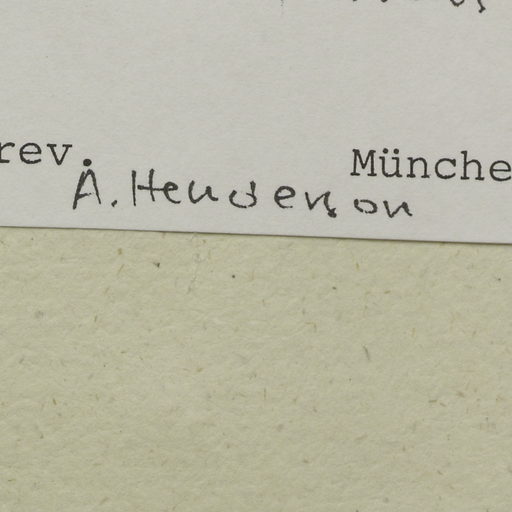 rev. Münche
A. Henderson